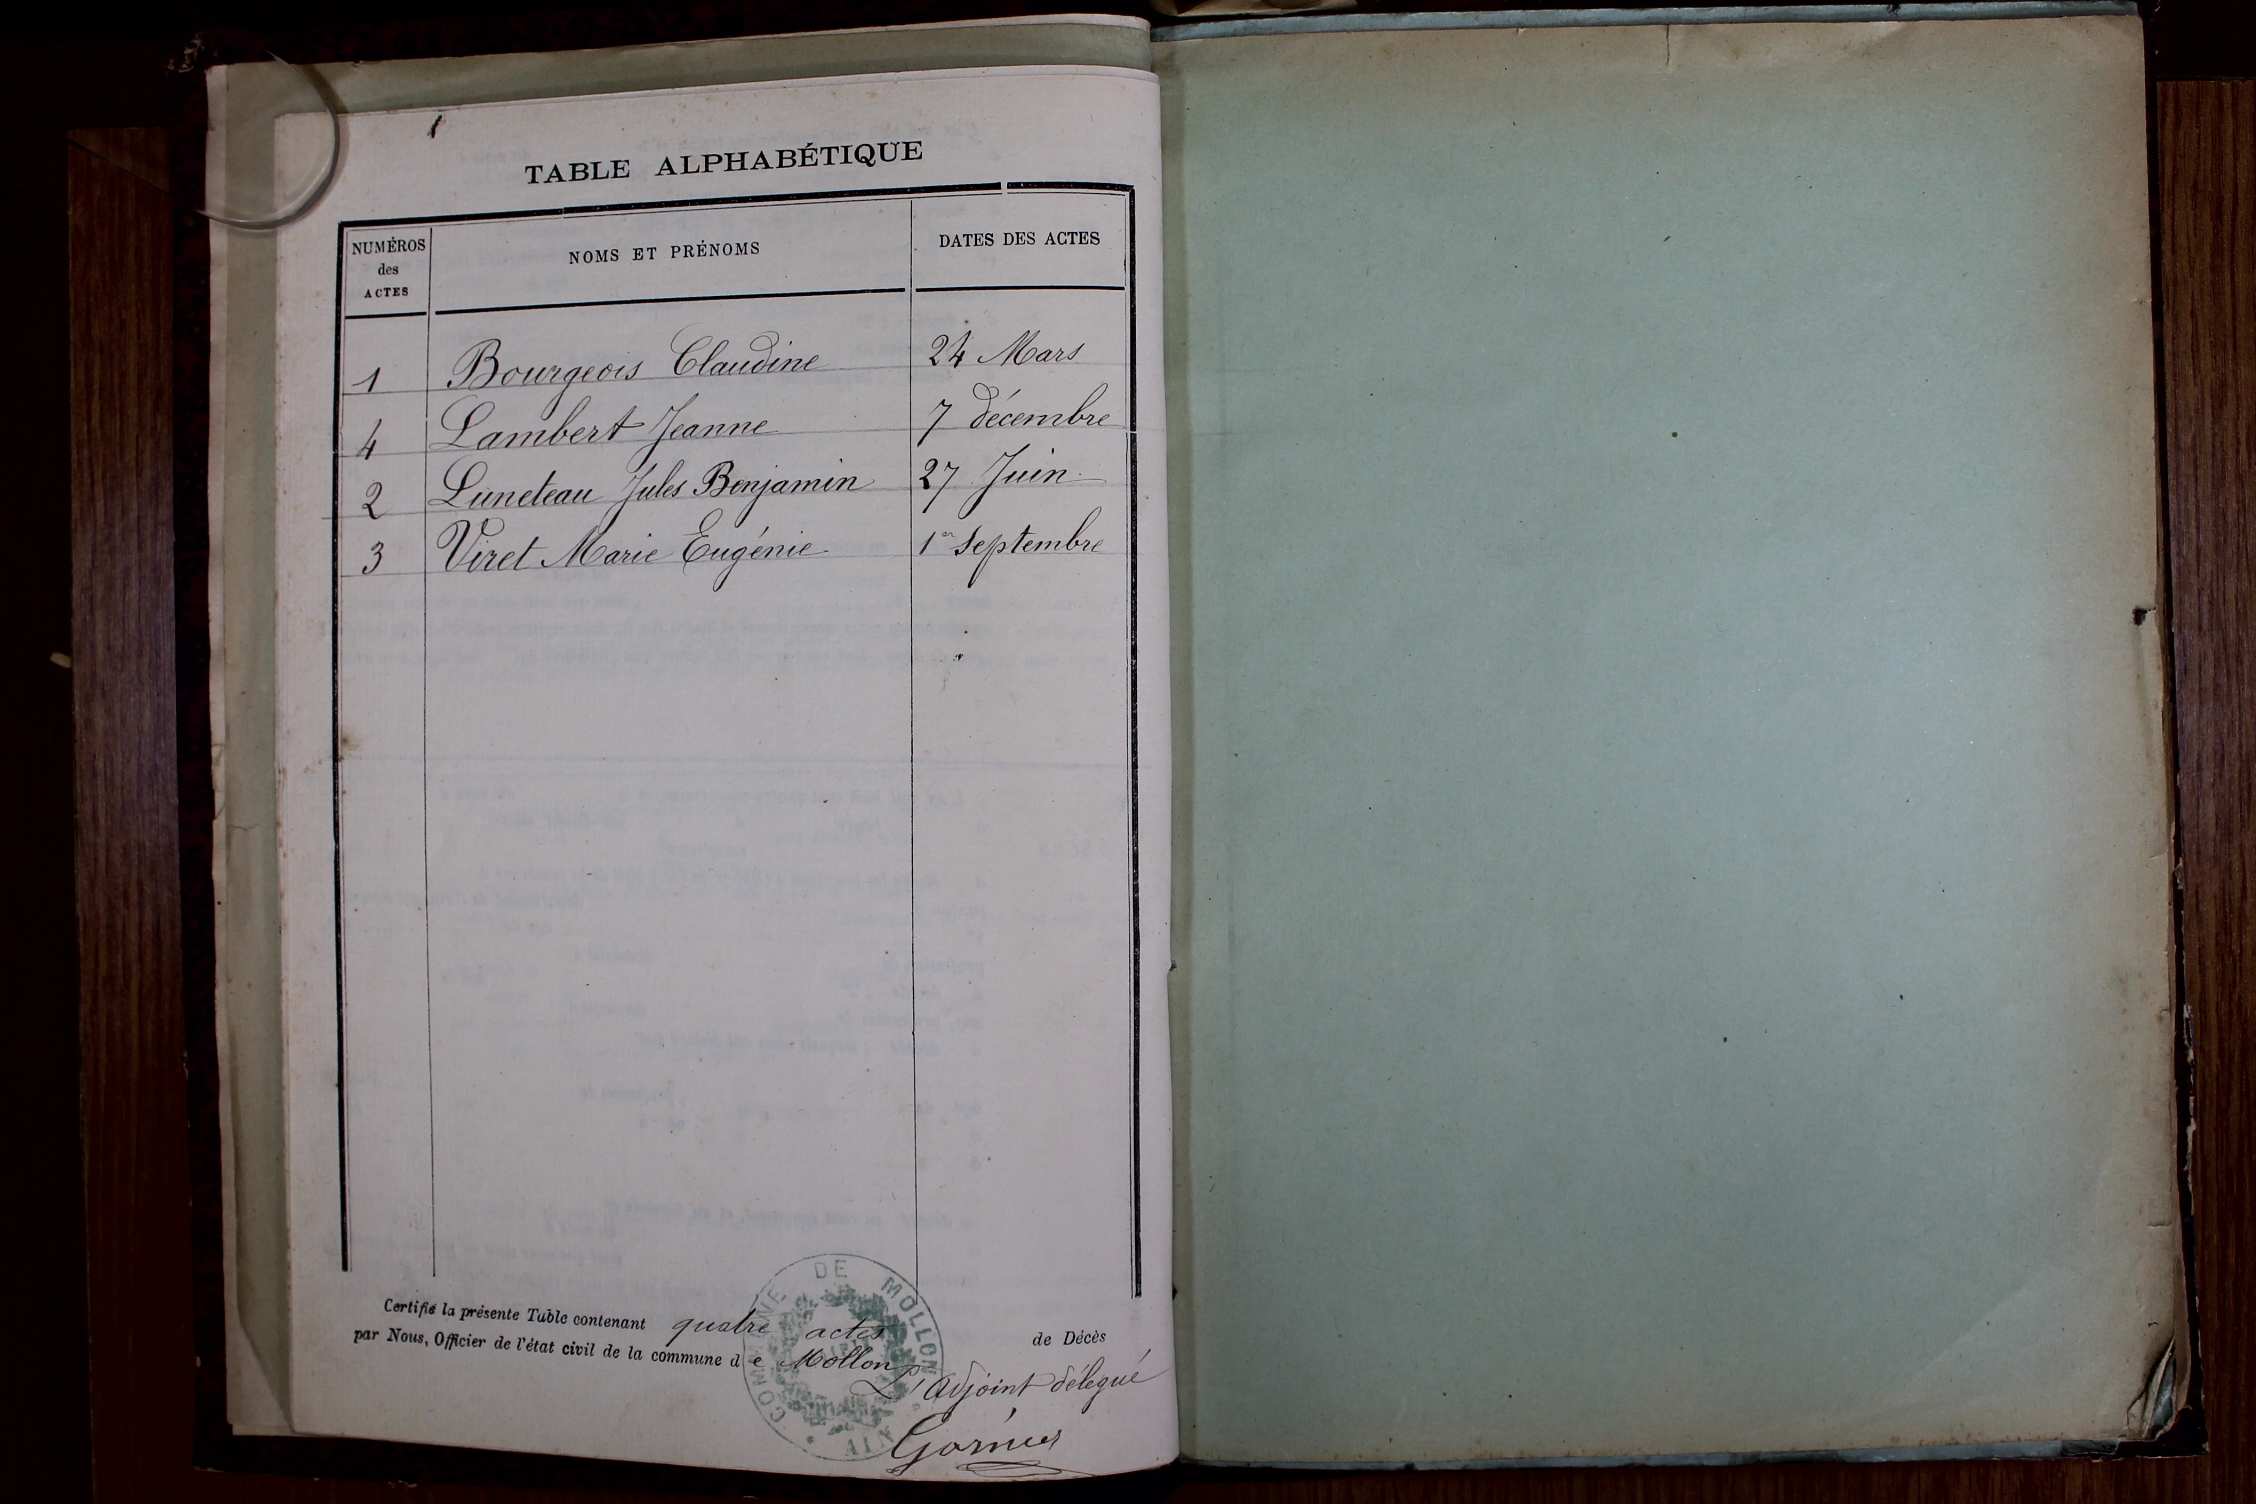 TABLE ALPHABÉTIQUE
NUMÉROS
des
ACTES
NOMS ET PRÉNOMS
DATES DES ACTES
1 Bourgeois Claudine 24 Mars
4 Lambert Jeanne 7 décembre
2 Luneteau Jules Benjamin 27 Juin
3 Viret Marie Eugénie 1er Septembre
Certifié la présente Table contenant quatre actes de Décès
par Nous, Officier de l'état civil de la commune de Mollon
L'adjoint délégué
COMMUNE DE MOLLON
AIN